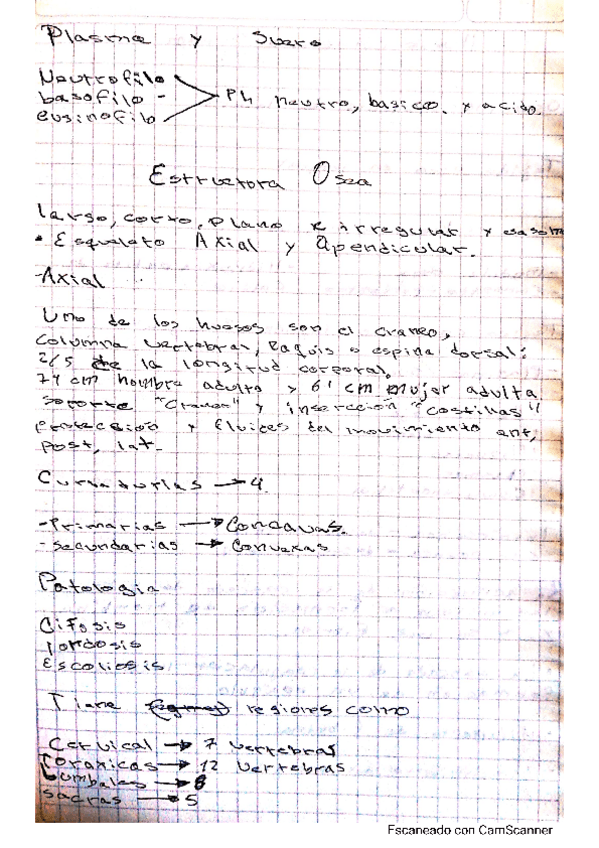 Plasma y Suero
Neutrofilo
basofilo - Ph neutro, basico. y acido.
eusinofilo
Estructora Osea
largo, corto, plano e irregular y
• Esqueleto Axial y Apendicular.
-Axial
Uno de los huesos son el craneo,
columna vertebral, Raquis o espina dorsal:
2/5 de la longitud corporal.
71 cm hombre adulto > 61 cm mujer adulta
soporte "Craneo" y inserción "costillas"/
protección y del movimiento ant,
post, lat.
Curvaduras → 4
-Primarias → Concavas.
-secundarias → Convexas
Patologia
Cifosis
lordosis
Escoliosis
Tiene regiones como
Cervical → 7 vertebras
Toraxicas → 12 vertebras
Lumbales →
sacras → 5
Escaneado con CamScanner